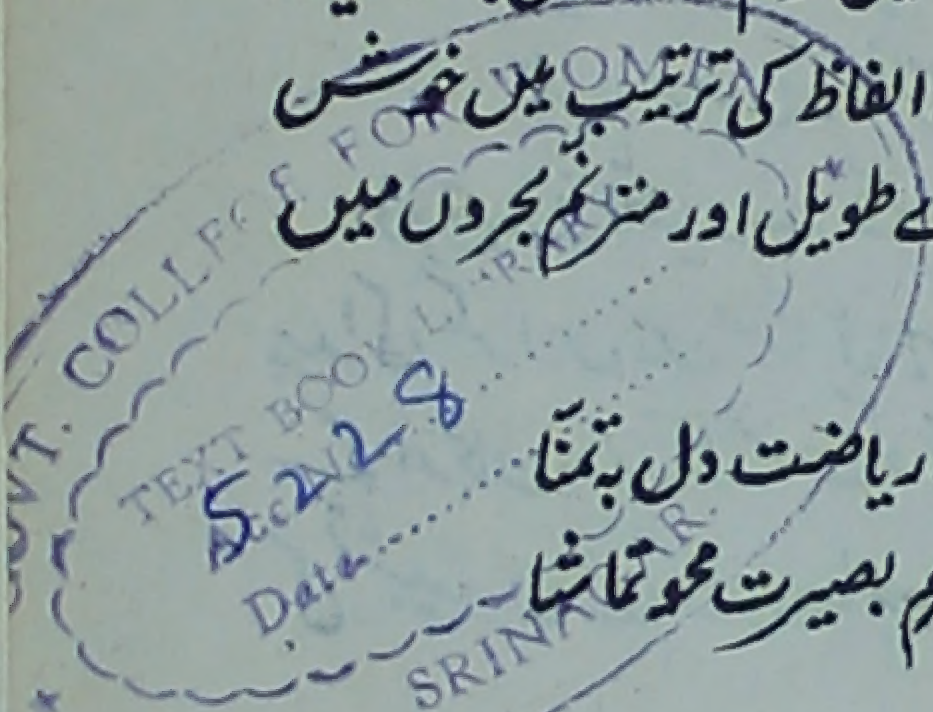 الفاظ کی ترتیب میں خوش
طویل اور مترنم بحروں میں
ریاضت دل بہ تمنّا
بصیرت محو تماشا
GOVT. COLLEGE FOR WOMEN
TEXT BOOK LIBRARY
Acc No. 5228
Date
SRINAGAR.